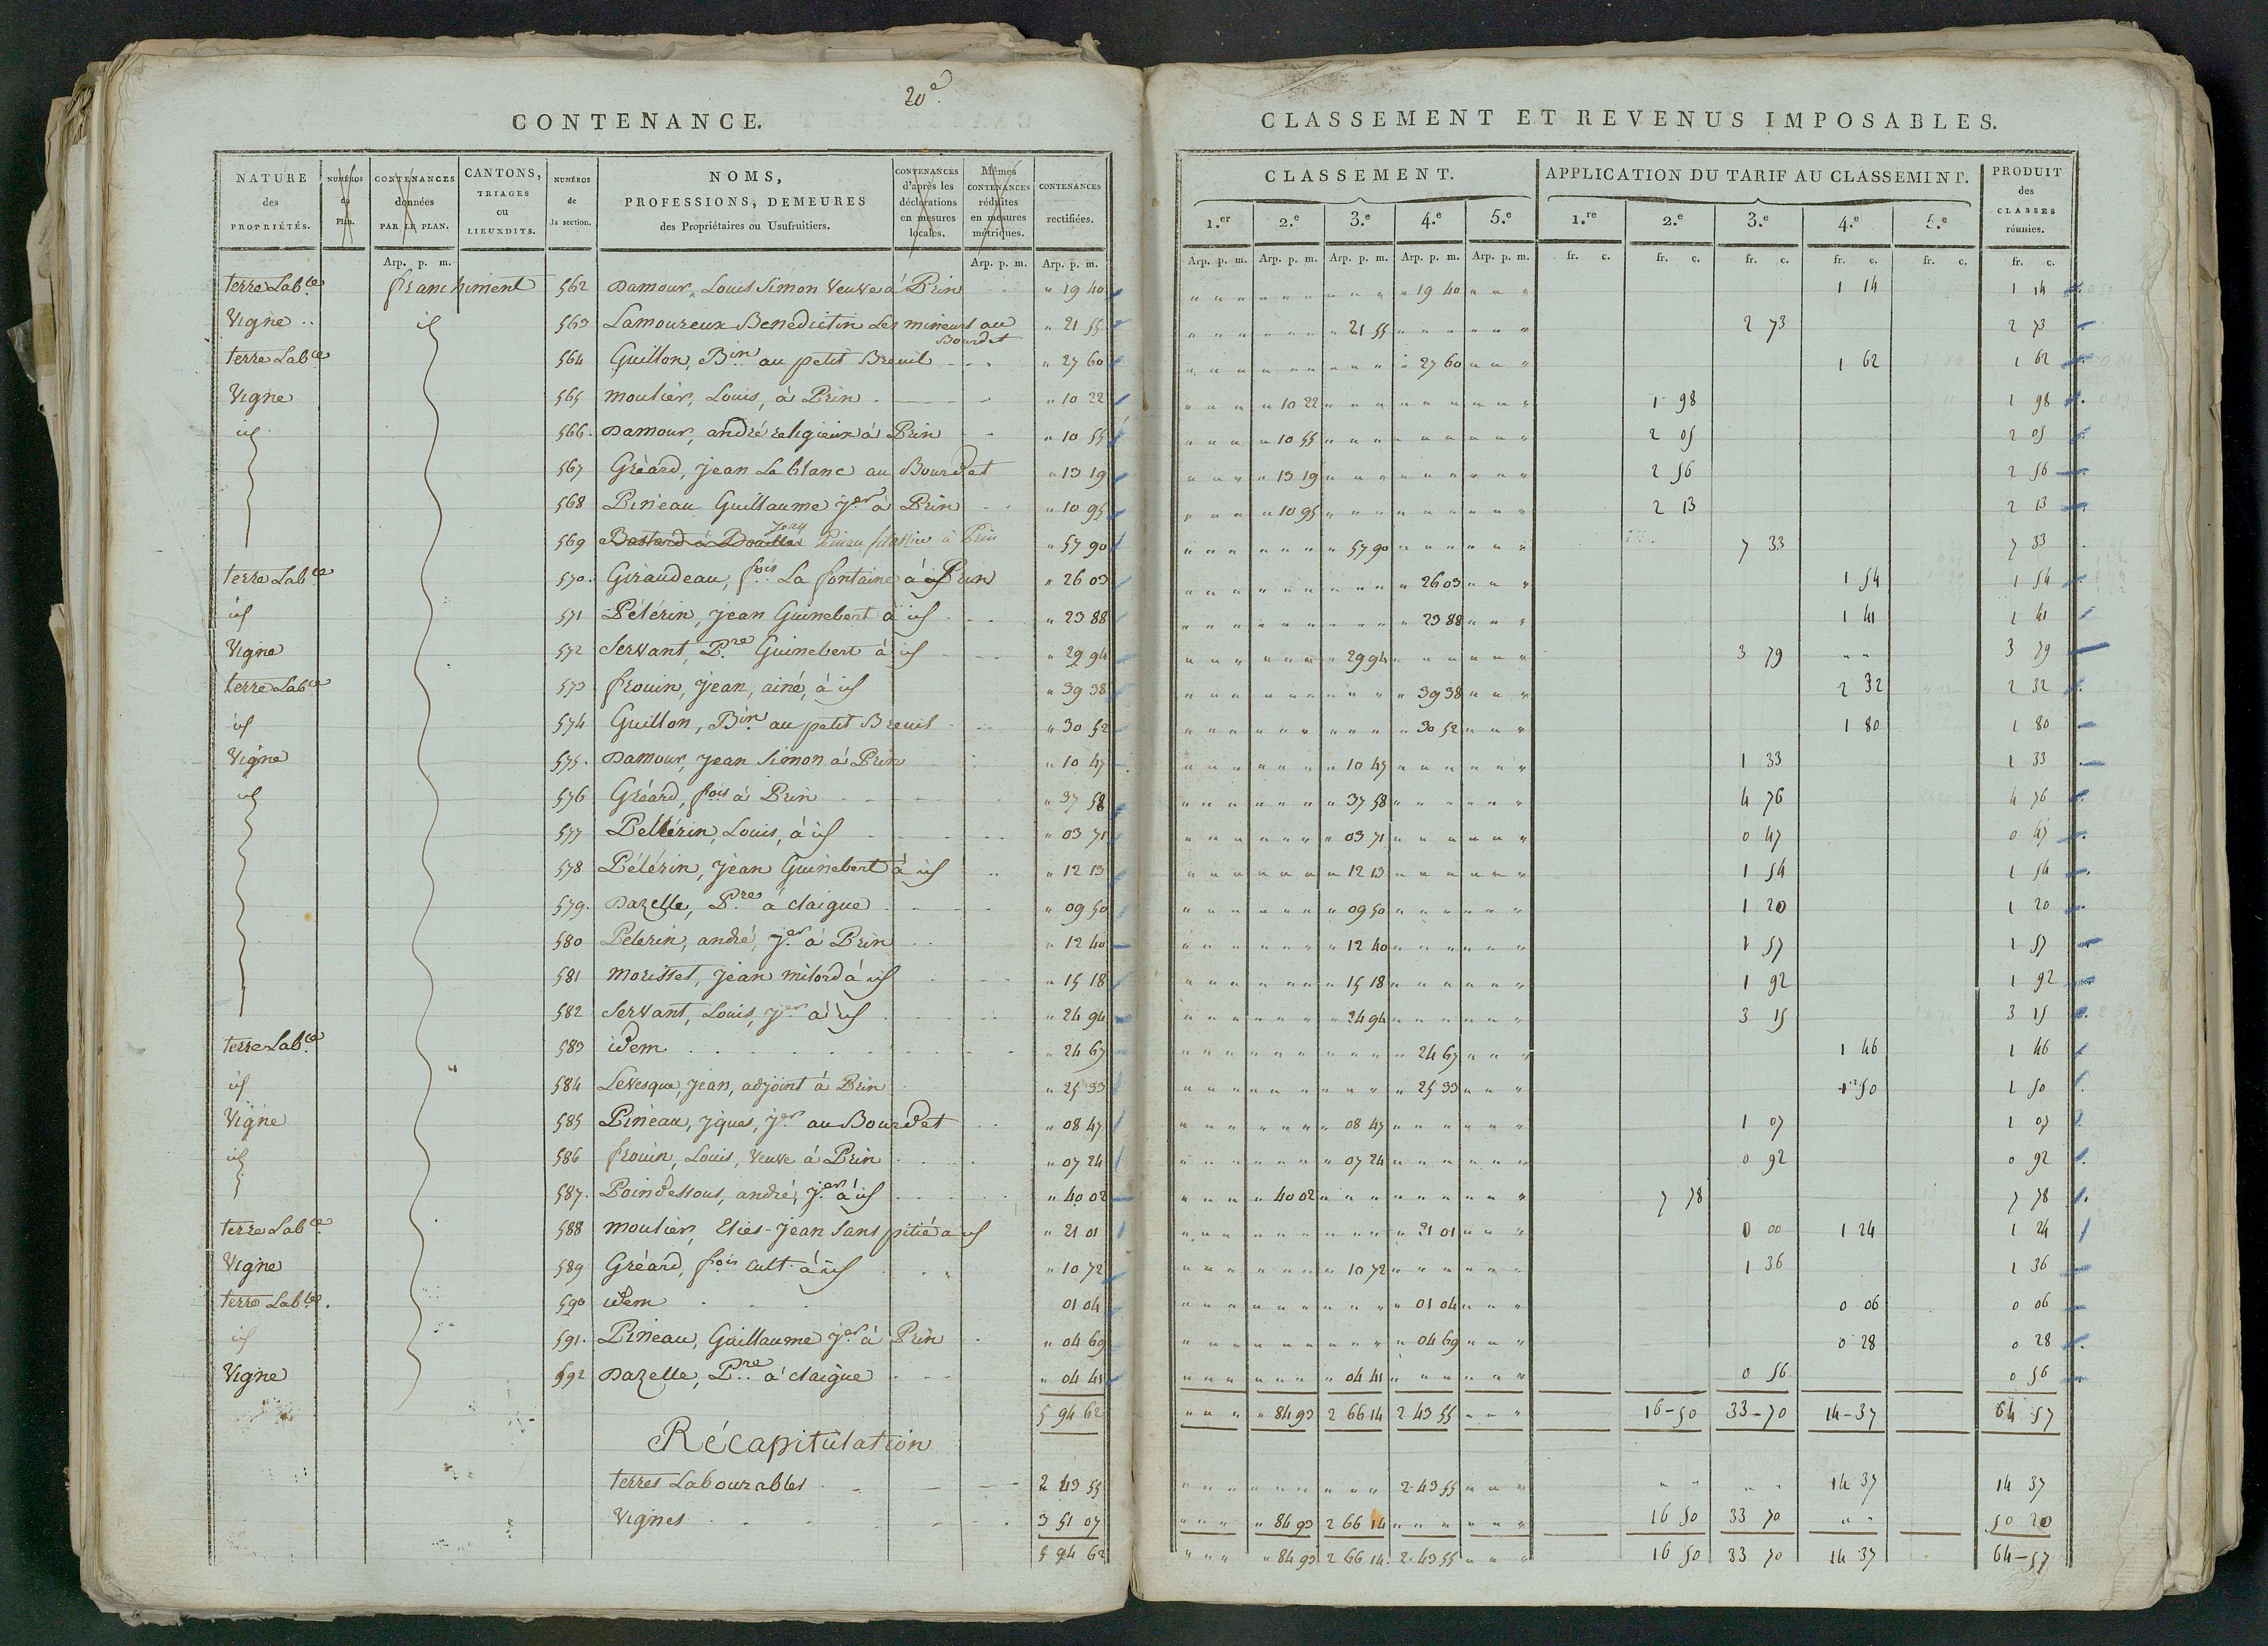 20e.
CONTENANCE.
NATURE des PROPRIÉTÉS. NUMÉROS du Plan. CONTENANCES données PAR LE PLAN. CANTONS, TRIAGES ou LIEUXDITS. NUMÉROS de la section. NOMS, PROFESSIONS, DEMEURES des Propriétaires ou Usufruitiers. CONTENANCES d'après les déclarations en mesures locales. Mêmes CONTENANCES réduites en mesures métriques. CONTENANCES rectifiées.
Arp. p. m. Arp. p. m. Arp. p. m.
terre Lable franchiment 562 Damour, Louis Simon Veuve à Prin " 19 40
Vigne .. id 563 Lamoureux Benedictin Les mineurs au Bourdet " 21 55
terre Lable 564 Guillon, Bin au petit Breuil " 27 60
Vigne 565 moulier, Louis, à Prin " 10 22
id 566. Damour, andré religieux à Prin " 10 55
567 Gréard, jean Le blanc au Bourdet " 13 19
568 Pineau Guillaume jer à Prin " 10 95
569 Bastard à Douillet Jean Pineau à Prin " 57 90
terre Lable 570. Giraudeau, fois La fontaine à Prin " 26 03
id 571 Pélérin, jean Guinebert à id " 23 88
Vigne 572 Servant, Pre Guinebert à id " 29 94
terre Lable 573 frouin, jean, ainé, à id " 39 38
id 574 Guillon, Bin au petit Breuil " 30 52
Vigne 575. Damour, jean Simon à Prin " 10 47
id 576 Gréard, fois à Prin " 37 58
577 Pellérin, Louis, à id " 03 71
578 Pélérin, jean Guinebert à id " 12 13
579. Dazelle, Pre à claigue " 09 50
580 Pelerin, andré, jer à Prin " 12 40
581 morisset, jean milord à id " 15 18
582 Servant, Louis, jer à id " 24 94
terre Lable 583 idem " 24 67
id 584 Levesque, jean, adjoint à Prin " 25 33
Vigne 585 Pineau, jques, jer au Bourdet " 08 47
id 586 frouin, Louis, veuve à Prin " 07 24
587. Poindessous, andré, jer à id " 40 02
terre Lable 588 moulier, Elies-Jean Sans pitié à id " 21 01
Vigne 589 Gréard, fois cult. à id " 10 72
terre Lable. 590 idem 01 04
id 591. Pineau, Guillaume jer à Prin " 04 69
Vigne 592 Dazelle, Pre à claigue " 04 41
5 94 62
Récapitulation
terres Labourables 2 43 55
Vignes 3 51 07
5 94 62
CLASSEMENT ET REVENUS IMPOSABLES.
CLASSEMENT. APPLICATION DU TARIF AU CLASSEMENT. PRODUIT des CLASSES réunies.
1.er 2.e 3.e 4.e 5.e 1.re 2.e 3.e 4.e 5.e
Arp. p. m. Arp. p. m. Arp. p. m. Arp. p. m. Arp. p. m. fr. c. fr. c. fr. c. fr. c. fr. c. fr. c.
" 19 40 1 14 1 14
" 21 55 2 73 2 73
" 27 60 1 62 1 62
" 10 22 1 98 1 98
" 10 55 2 05 2 05
" 13 19 2 56 2 56
" 10 95 2 13 2 13
" 57 90 7 33 7 33
" 26 03 1 54 1 54
" 23 88 1 41 1 41
" 29 94 3 79 " " 3 79
" 39 38 2 32 2 32
" 30 52 1 80 1 80
" 10 47 1 33 1 33
" 37 58 4 76 4 76
" 03 71 0 47 0 47
" 12 13 1 54 1 54
" 09 50 1 20 1 20
" 12 40 1 57 1 57
" 15 18 1 92 1 92
" 24 94 3 15 3 15
" 24 67 1 46 1 46
" 25 33 1 50 1 50
" 08 47 1 07 1 07
" 07 24 0 92 0 92
" 40 02 7 78 7 78
" 21 01 0 00 1 24 1 24
" 10 72 1 36 1 36
" 01 04 0 06 0 06
" 04 69 0 28 0 28
" 04 41 0 56 0 56
" " " " 84 93 2 66 14 2 43 55 " " " 16-50 33-70 14-37 64 57
2-43 55 " " " " 14 37 14 37
" 84 93 2 66 14 16 50 33 70 " " 50 20
" " " " 84 93 2 66 14. 2. 43 55 " " " 16 50 33 70 14 37 64-57